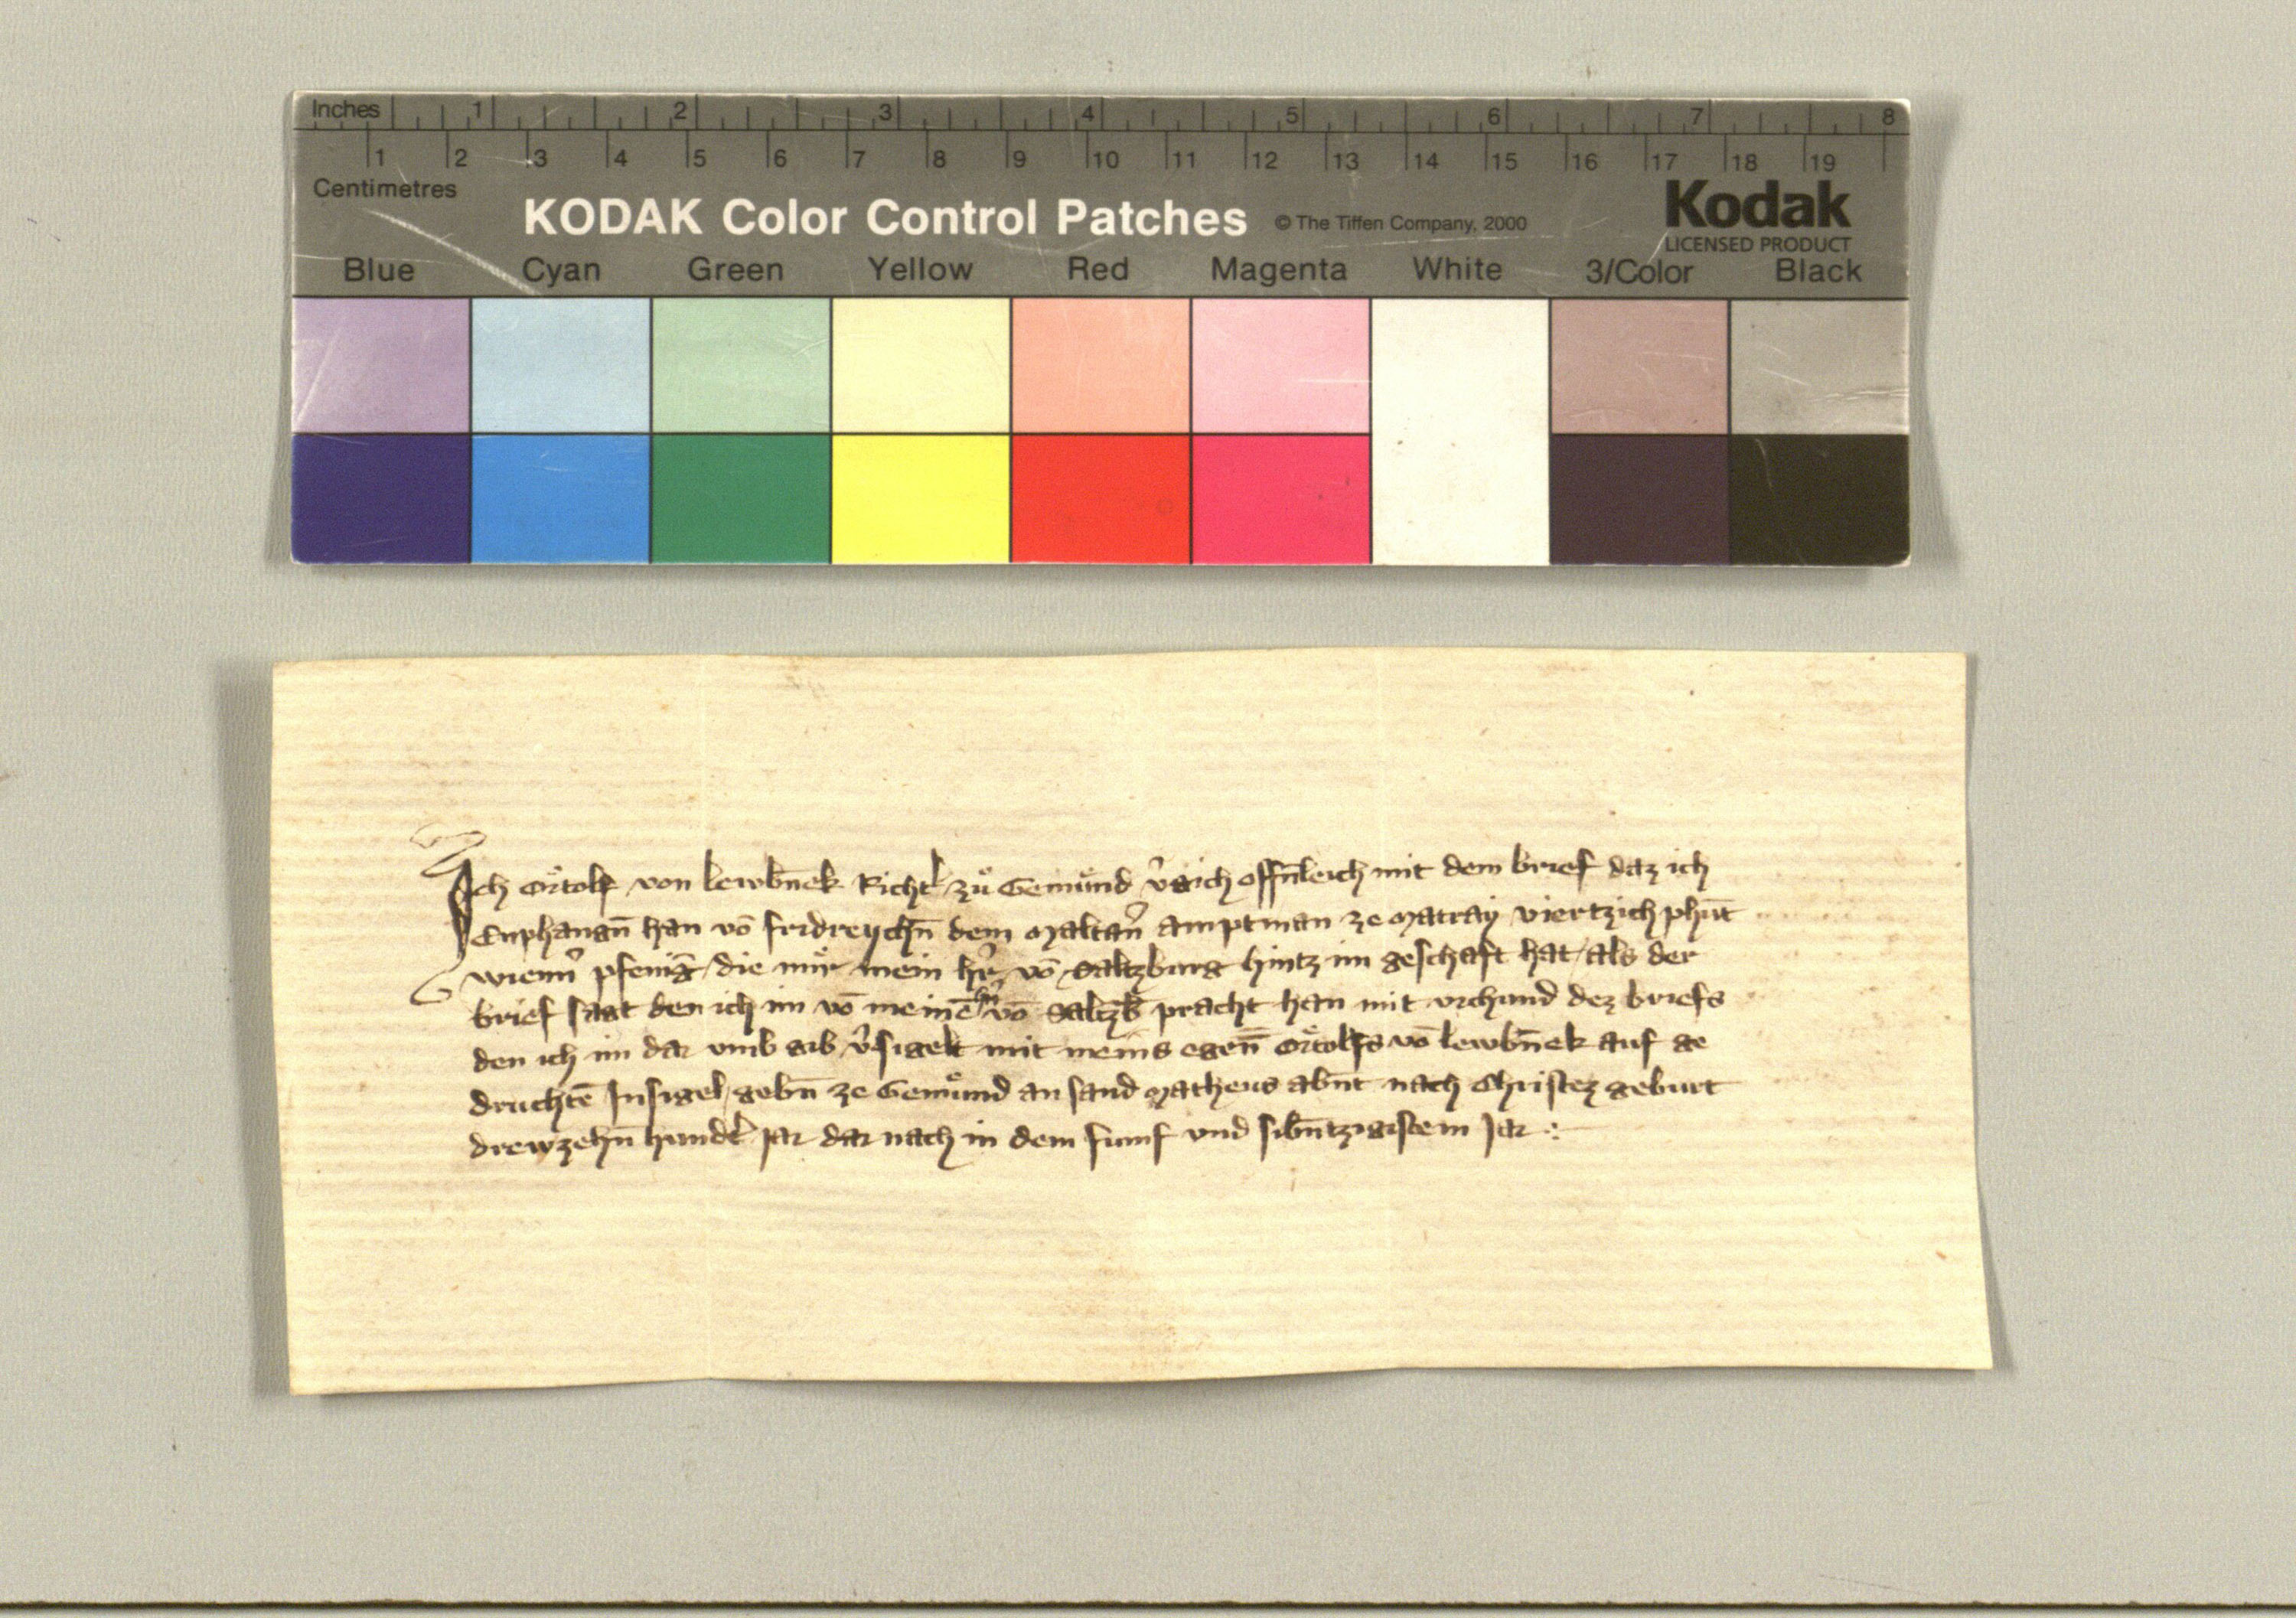 Inches 1 2 3 4 5 6 7 8
1 2 3 4 5 6 7 8 9 10 11 12 13 14 15 16 17 18 19
Centimetres
KODAK Color Control Patches © The Tiffen Company, 2000 Kodak
LICENSED PRODUCT
Blue Cyan Green Yellow Red Magenta White 3/Color Black
Ich Ortolf von lewbn̄ek Richt zů Gemůnd v̓gich offn̄leich mit dem brief daz ich
Enphangn̄ han vō fridreychn̄ dem Maltan̓ amptman ze Matray viertzich phūt
wienn̓ pfeniḡ die mir mein hr̓ vō Saltzburg hintz im geschaft hat als der
brief sagt den ich im vō meinē hn̓ vō Saltzb̄ pracht han mit vrchund dez briefs
den ich im dar vmb gib v̓sigelt mit meins egen̄ Ortolfs vō lewbn̄ek auf ge
druchtē Insigel gebn̄ ze Gemůnd an sand Matheus abn̄t nach Christez geburt
drewzehn̄ hundt̓ jar dar nach in dem fumf vnd sibn̄tzigistem Jar